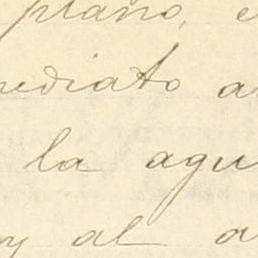 plano, e
mediato a
la agu
y al a